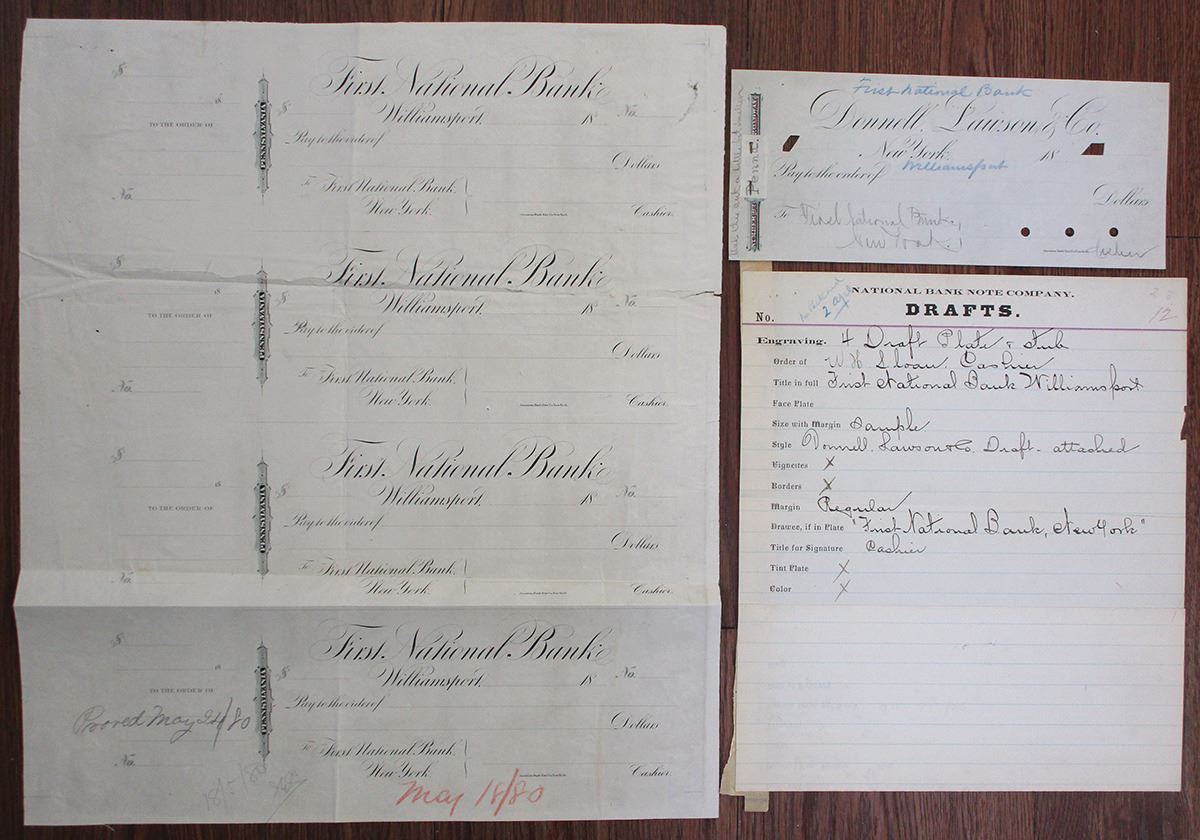 $
18
TO THE ORDER OF
No.
PENNSYLVANIA
First National Bank
$ Williamsport, 18 No.
Pay to the order of
Dollars
To First National Bank,
New York. Cashier.
$
18
TO THE ORDER OF
No.
PENNSYLVANIA
First National Bank
$ Williamsport, 18 No.
Pay to the order of
Dollars
To First National Bank,
New York. Cashier.
$
18
TO THE ORDER OF
No.
PENNSYLVANIA
First National Bank
$ Williamsport, 18 No.
Pay to the order of
Dollars
To First National Bank,
New York. Cashier.
$
18
TO THE ORDER OF
Proved May 24/80
No.
18/5/80
PENNSYLVANIA
First National Bank
$ Williamsport, 18 No.
Pay to the order of
Dollars
To First National Bank,
New York. Cashier.
May 18/80
First National Bank
Donnell, Lawson & Co.
New York, 18
Williamsport
Pay to the order of
Dollars
To First National Bank,
New York.
Cashier
Penna.
NATIONAL BANK NOTE COMPANY.
DRAFTS.
No.
12
Engraving. 4 Draft Plate & Stub
Order of W H Sloan, Cashier
Title in full First National Bank Williamsport
Face Plate
Size with Margin Sample
Style Donnell, Lawson & Co. Draft - attached
Vignettes X
Borders X
Margin Regular
Drawee, if in Plate "First National Bank, New York"
Title for Signature Cashier
Tint Plate X
Color X